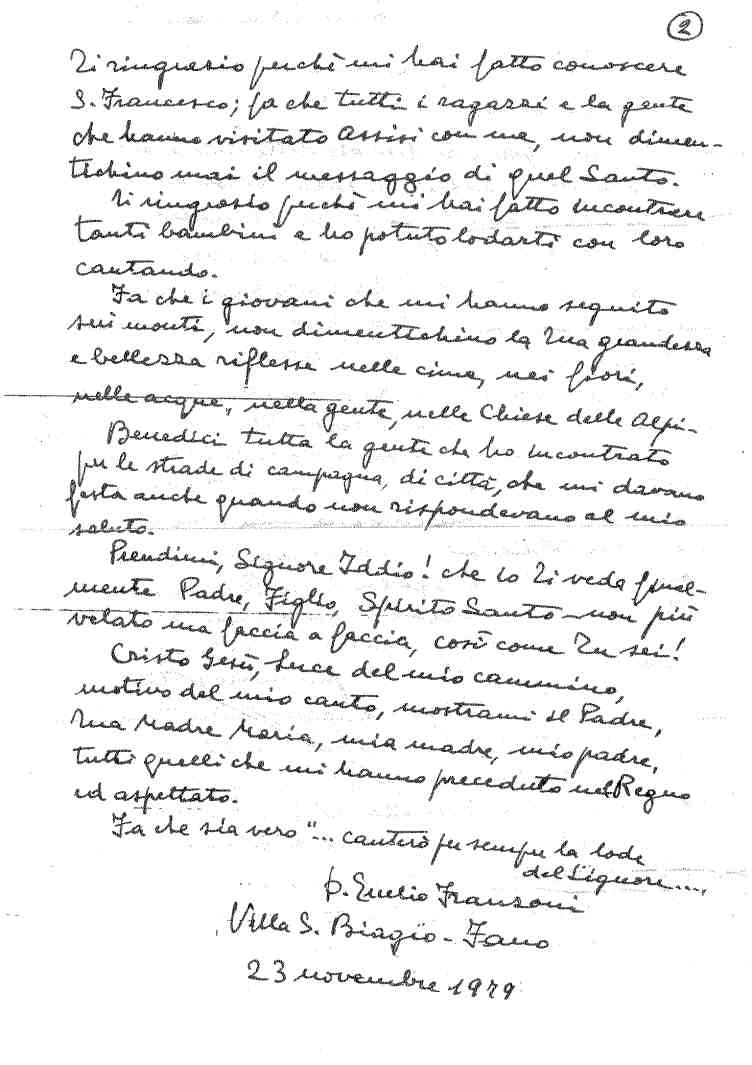 2
Ti ringrazio perchè mi hai fatto conoscere
S. Francesco; fa che tutti i ragazzi e la gente
che hanno visitato Assisi con me, non dimen-
tichino mai il messaggio di quel Santo.
Ti ringrazio perchè mi hai fatto incontrare
tanti bambini e ho potuto lodarti con loro
cantando.
Fa che i giovani che mi hanno seguito
sui monti, non dimentichino la Tua grandezza
e bellezza riflesse nelle cime, nei fiori,
nelle acque, nella gente, nelle Chiese delle Alpi.
Benedici tutta la gente che ho incontrato
per le strade di campagna, di città, che mi davano
festa anche quando non rispondevano al mio
saluto.
Prendimi, Signore Iddio! che io Ti veda final-
mente Padre, Figlio, Spirito Santo - non più
velato ma faccia a faccia, così come Tu sei!
Cristo Gesù, Luce del mio cammino,
motivo del mio canto, mostrami il Padre,
Tua Madre Maria, mia madre, mio padre,
tutti quelli che mi hanno preceduto nel Regno
ed aspettato.
Fa che sia vero "... canterò per sempre la lode
del Signore....,
p. Emilio Franzoni
Villa S. Biagio - Fano
23 novembre 1979